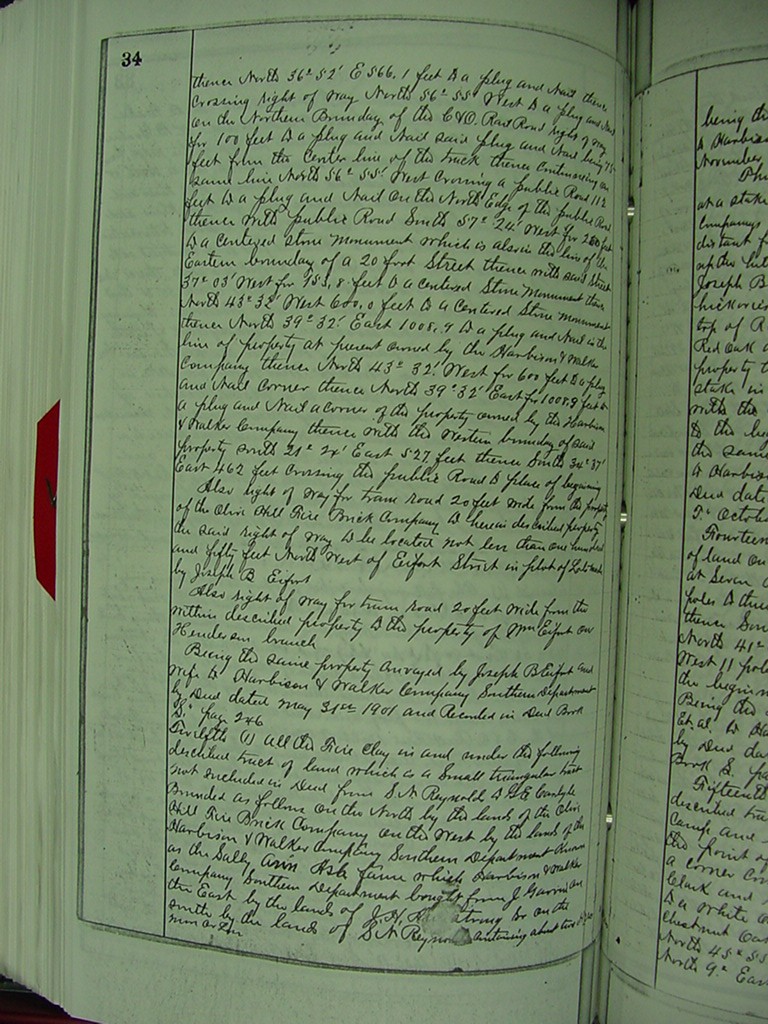 34
thence North 36° 52' E 566.1 feet to a plug and Nail thence
Crossing right of way North 56° 55' West to a plug and Nail
on the Northern Boundary of the C&O. Rail Road right of way
for 100 feet to a plug and Nail said plug and Nail being 75
feet from the Center line of the track thence Continuing on
same line North 56° 55' West Crossing a public Road 112
feet to a plug and Nail on the North Edge of the public Road
thence with public Road South 57° 24' West for 200 feet
to a Centered stone monument which is also in the line of the
Eastern boundary of a 20 foot Street thence with said Street
37° 03' West for 755.8 feet to a Centered Stone Monument thence
North 43° 32' West 600.0 feet to a Centered Stone Monument
thence North 39° 32' East 1008.9 to a plug and Nail in the
line of property at present owned by the Harbison & Walker
Company thence North 43° 32' West for 600 feet to a plug
and Nail Corner thence North 39° 32' East for 1008.9 feet to
a plug and Nail a corner of the property owned by the Harbison
& Walker Company thence with the Western boundary of said
property South 21° 24' East 527 feet thence South 34° 37'
East 462 feet Crossing the public Road to place of beginning
Also right of way for tram road 20 feet wide from the property
of the Olive Hill Fire Brick Company to herein described property
the said right of way to be located not less than one hundred
and fifty feet North West of Eifort Street in plat of Lots made
by Joseph B Eifort
Also right of way for tram road 20 feet wide from the
within described property to the property of Wm Eifort on
Henderson branch
Being the same property conveyed by Joseph B Eifort and
wife to Harbison & Walker Company Southern Department
by Deed dated May 31st 1901 and Recorded in Deed Book
page 246
Twelfth (1) all the Fire Clay in and under the following
described tract of land which is a Small triangular tract
not included in Deed from S. N. Reynold to
Bounded as follows on the North by the lands of the Olive
Hill Fire Brick Company on the West by the lands of the
Harbison & Walker Company Southern Department known
as the Sally Ann Ash farm which Harbison & Walker
Company Southern Department bought from J. on
the East by the lands of J. H. on the
South by the lands of S. N. Containing about two
more or less
being th
Harbison
November
at a stake
Companys
distant f
up the hill
Joseph B
hickories
top of R
Red Oak a
property t
stake in
with the
to the beg
the same
to Harbison
Deed date
Octob
Fourteen
of land on
at Seven
poles to then
thence Sou
North 41°
West 11 pole
the beginn
Being the
Et. al. to Ha
by Deed da
Book S. pa
Fifteenth
described tra
Camp and
the point of
a corner
Clark and
to a White
Chestnut Oak
North 45° 55
North 9° Eas